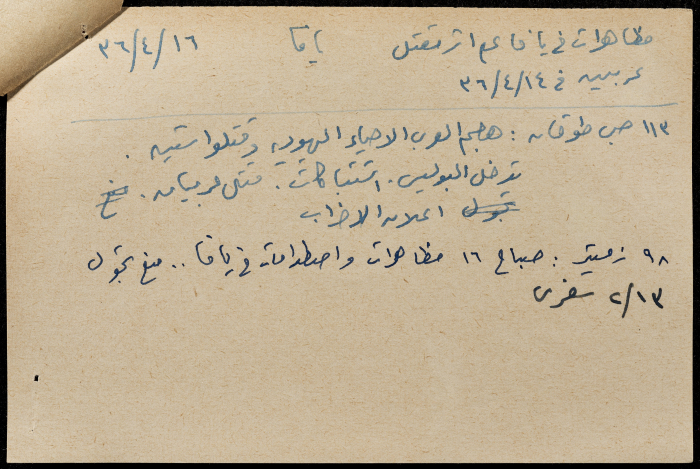 مظاهرات في يافا على اثر مقتل يافا ٣٦/٤/١٦
عربيين في ٣٦/٤/١٤
١١٣ صبحي طوقان : هاجم العرب الاحياء اليهودية وقتلوا ستية .
تدخل البوليس . اشتباكات . قتل عربيان . منع
تجول اعلان الاضراب
٩٨ زعيتر : صباح ١٦ مظاهرات واصطدامات في يافا .. منع تجول
٢/١٣ سفري